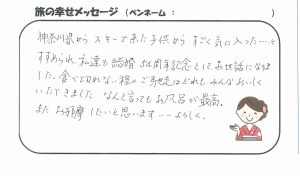 旅の幸せメッセージ (ペンネーム: )
神奈川県から スキーで来た子供から すごく気に入った…と
すすめられ 私達も 結婚 54周年記念としてお世話になりま
した。食べ切れない程のご馳走はどれもみんなおいしく
いただきました。なんと言ってもお風呂が最高。
また お邪魔したいと思います…よろしく。